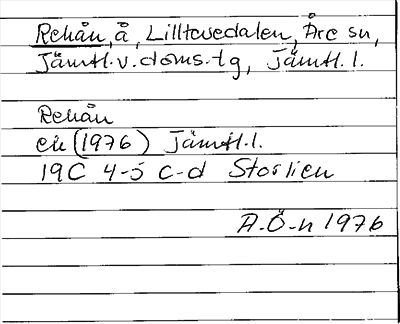 Rekån, å, Lilltevedalen, Åre sn,
Jämtl.v.doms.tg, Jämtl. l.
Rekån
ek (1976) Jämtl.l.
19C 4-5 c-d Storlien
A.Ö-n 1976